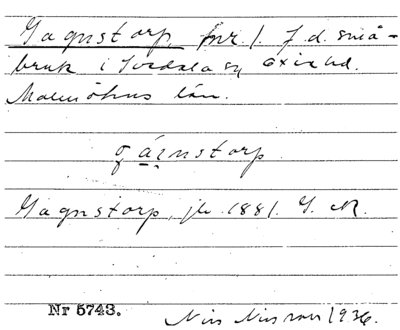 Gagnstorp, fnr 1. f.d. små-
bruk i Svedala sn Oxie hd.
Malmöhus län.
gáṛnstorp
Gagnstorp, jb. 1881. G. M.
Nr 5743.
Nils Nilsson 1936.